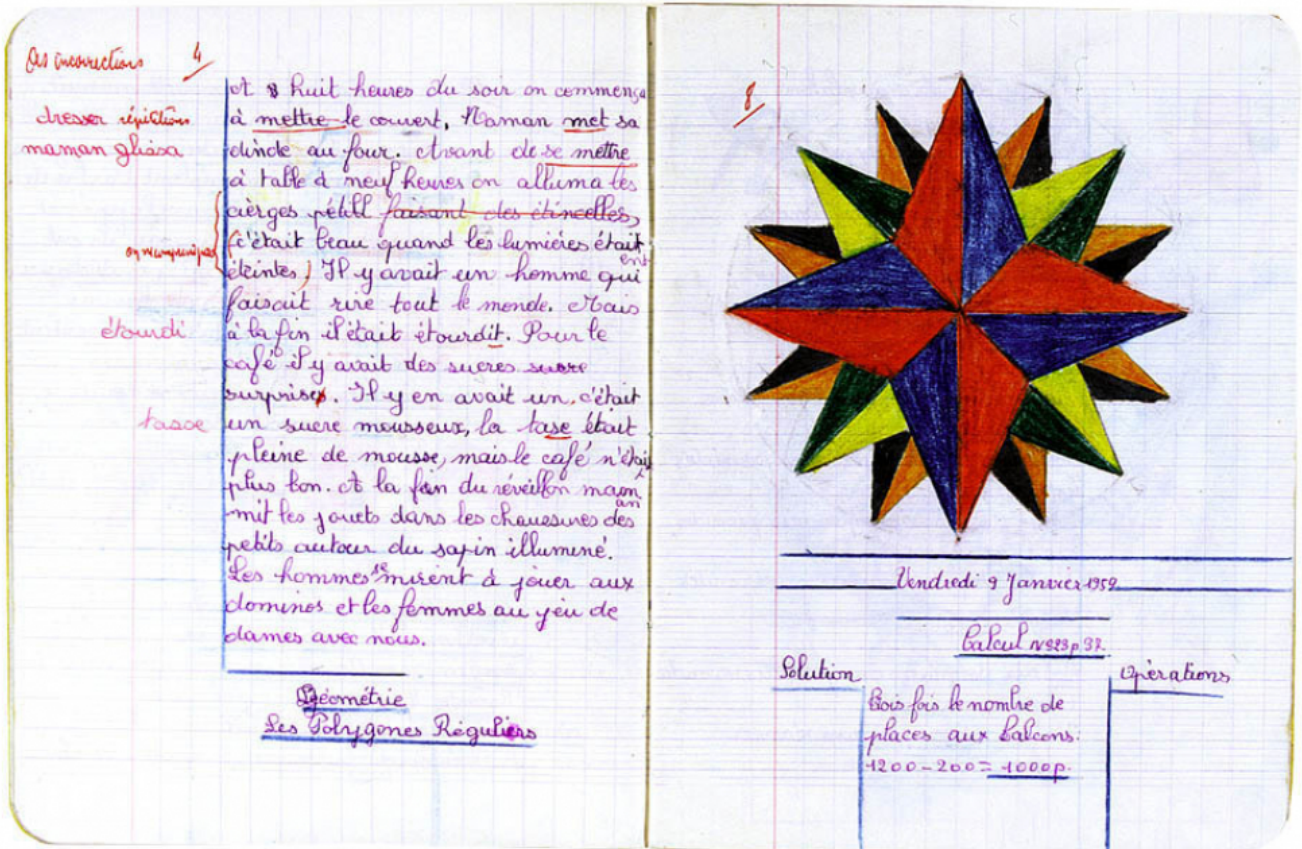 Des incorrections
4
dresser répétitions
maman glissa
étourdi
tasse
A huit heures du soir on commença
à mettre le couvert, Maman met sa
dinde au four. Avant de se mettre
à table à neuf heures on alluma les
cièrges pétill faisant des étincelles,
c'était beau quand les lumières était
ent
éteintes) Il y avait un homme qui
faisait rire tout le monde. Mais
à la fin il était étourdit. Pour le
café il y avait des sucres sucre
surprises. Il y en avait un, c'était
un sucre mousseux, la tase était
pleine de mousse, mais le café n'était
plus bon. A la fin du réveillon maon
an
mit les jouets dans les chaussures des
petits autour du sapin illuminé.
Les hommes se mirent à jouer aux
dominos et les femmes au jeu de
dames avec nous.
Géométrie
Les Polygones Réguliers
8
Vendredi 9 Janvier 1959
Calcul N°323 p. 92
Solution
Opérations
Trois fois le nombre de
places aux balcons:
1200 - 200 = 1000p.